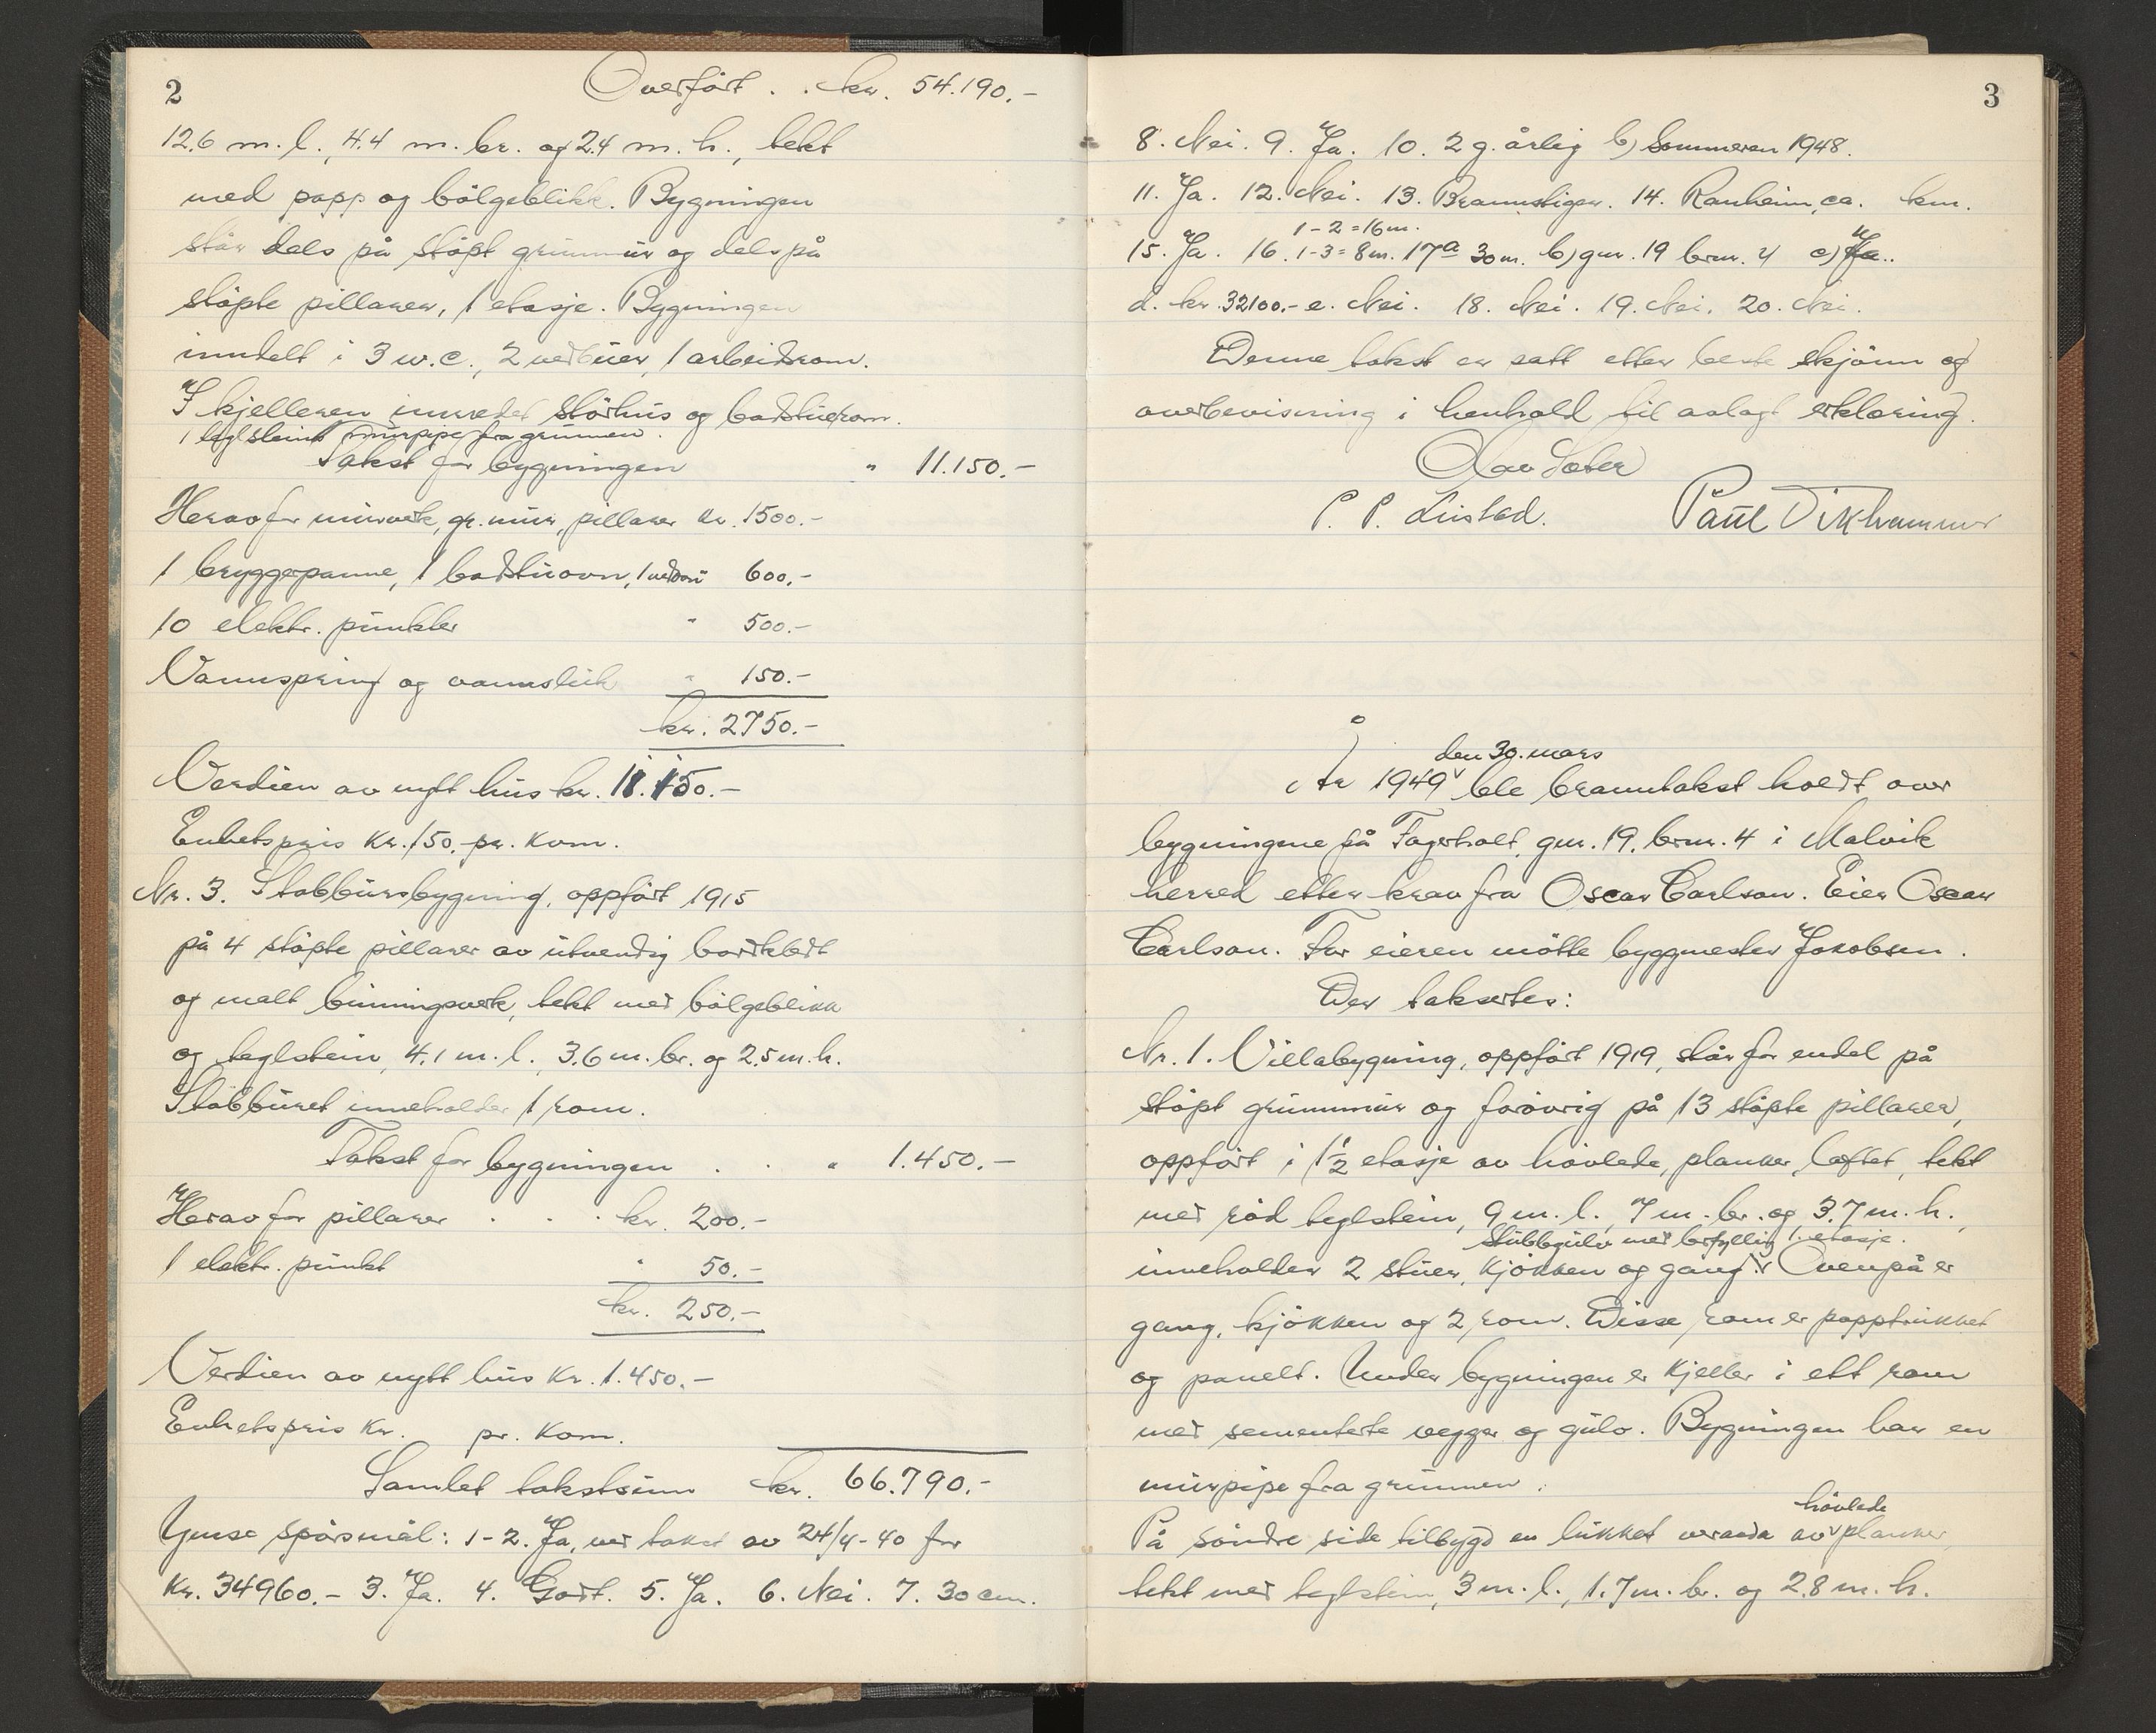 2
Overført . . kr. 54.190.-
12.6 m. l., 4.4 m. br. og 2.4 m. h., tekt
med papp og bölgeblikk. Bygningen
står dels på stöpt grunnmur og dels på
stöpte pillarer, 1 etasje. Bygningen
inndelt i 3 w.c., 2 vedbuer, 1 arbeidsrom.
I kjelleren innredet störhus og badstuerom.
1 teglsteins murpipe fra grunnen.
Takst for bygningen " 11.150.-
Herav for murverk, gr. mur, pillarer kr. 1500.-
1 bryggepanne, 1 badstuovn, 600.-
10 elektr. punkter " 500.-
Vannspring og vannslukk " 150.-
kr. 2750.-
Verdien av nytt hus kr. 11.150.-
Enhetspris kr. 150.- pr. kvm.
Nr. 3. Stabbursbygning, oppfört 1915
på 4 stöpte pillarer av utvendig bordkledt
og malt bindingsverk, tekt med bölgeblikk
og teglstein, 4.1 m. l., 3.6 m. br. og 2.5 m. h.
Stabburet inneholder 1 rom.
Takst for bygningen . . " 1.450.-
Herav for pillarer . . . kr. 200.-
1 elektr. punkt " 50.-
kr. 250.-
Verdien av nytt hus kr. 1.450.-
Enhetspris kr. pr. kvm.
Samlet takstsum kr. 66.790.-
Ymse spörsmål: 1-2. Ja, ved takst av 24/4-40 for
kr. 34960.- 3. Ja. 4. Godt. 5. Ja. 6. Nei. 7. 30 cm.
3
8. Nei. 9. Ja. 10. 2 g. årlig b) Sommeren 1948.
11. Ja. 12. Nei. 13. Brannstiger. 14. Ranheim, ca. km.
1-2 = 16 m.
15. Ja. 16. 1-3 = 8 m. 17a 30 m. b) gnr. 19 brnr. 4 c) Ja..
d. kr. 32100.- e. Nei. 18. Nei. 19. Nei. 20. Nei.
Denne takst er satt etter beste skjönn og
overbevisning i henhold til avlagt erklæring.
Olav Sæter
P. P. Leistad. Paul Dirhammer
den 30. mars
År 1949 ble branntakst holdt over
bygningene på Fagerholt, gnr. 19, brnr. 4 i Malvik
herred etter krav fra Oscar Carlson. Eier Oscar
Carlson. For eieren mötte byggmester Jakobsen.
Der taksertes:
Nr. 1. Villabygning, oppfört 1919, står for endel på
stöpt grunnmur og forövrig på 13 stöpte pillarer,
oppfört i 1½ etasje av hövlede planker, laftet, tekt
med röd teglstein, 9 m. l., 7 m. br. og 3.7 m. h.,
stubbgulv med leirfylling 1. etasje.
inneholder 2 stuer, kjökken og gang. Ovenpå er
gang, kjökken og 2 rom. Disse rom er papptrukket
og panelt. Under bygningen er kjeller i ett rom
med sementerte vegger og gulv. Bygningen har en
murpipe fra grunnen.
hövlede
På söndre side tilbygd en lukket veranda av planker,
tekt med teglstein, 3 m. l., 1.7 m. br. og 2.8 m. h.